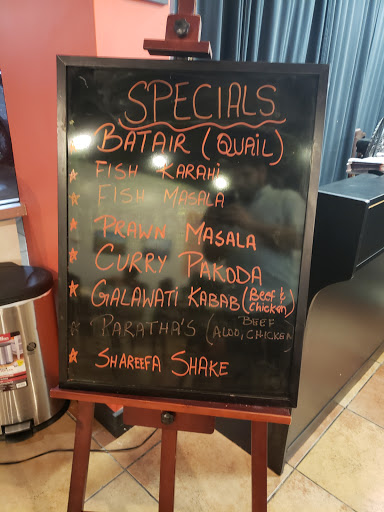 SPECIALS
BATAIR (QUAIL)
FISH KARAHI
FISH MASALA
PRAWN MASALA
CURRY PAKODA
GALAWATI KABAB (Beef & Chicken)
PARATHA'S (ALOO, BEEF, CHICKEN
SHAREEFA SHAKE